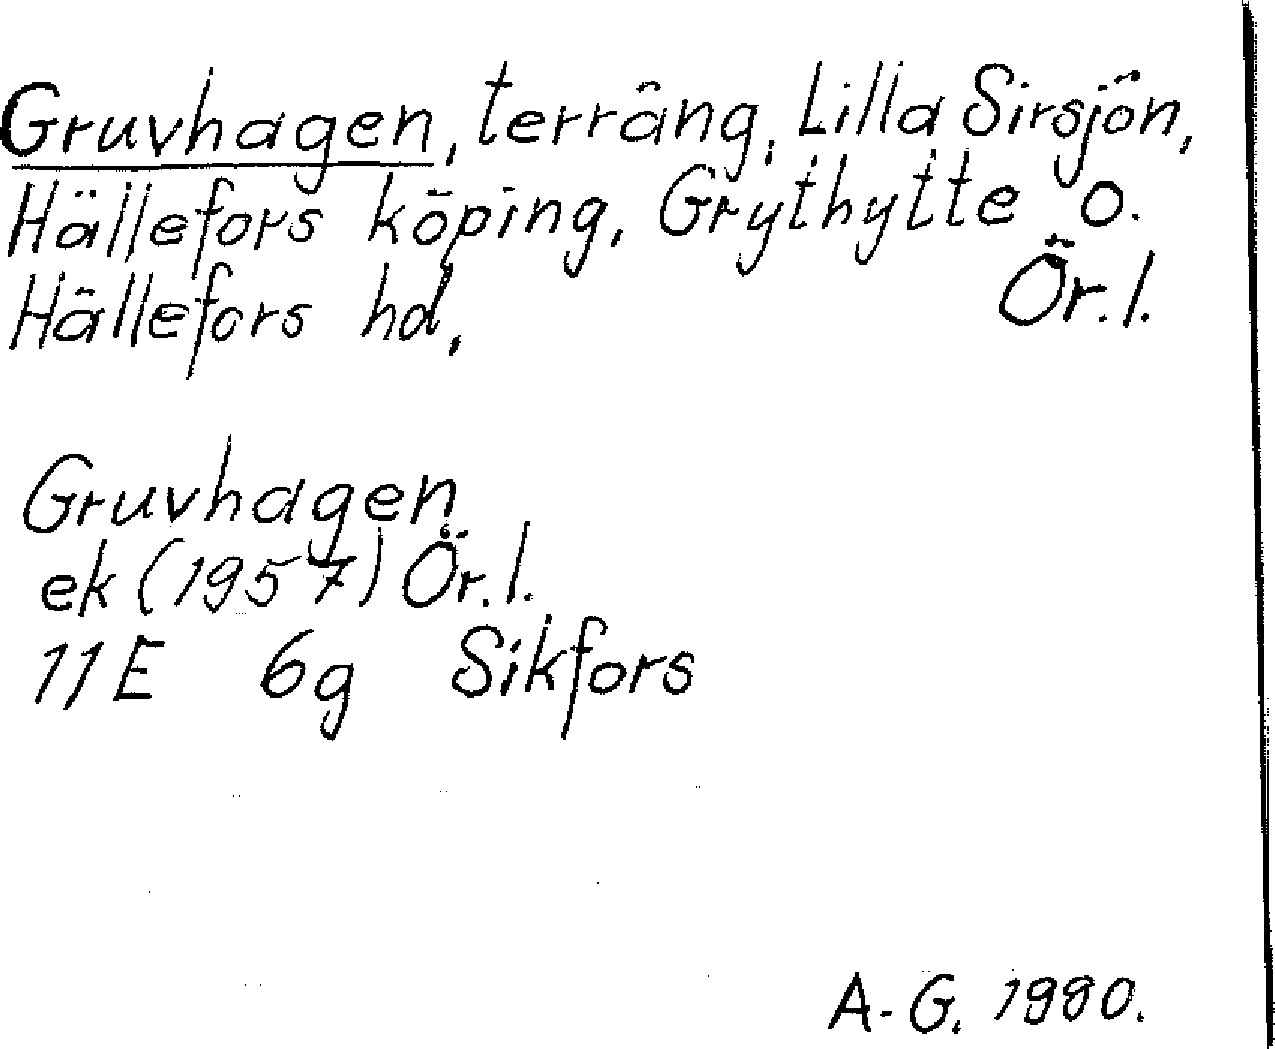 Gruvhagen, terräng, Lilla Sirsjön,
Hällefors köping, Grythytte o.
Hällefors hd, Ör. l.
Gruvhagen
ek (1957) Ör. l.
11E 6g Sikfors
A-G. 1980.